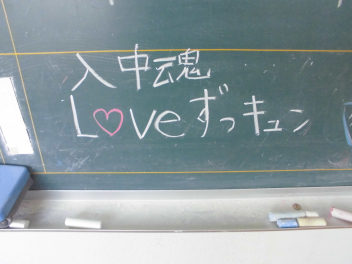 入中魂
L♡ve ずっキュン